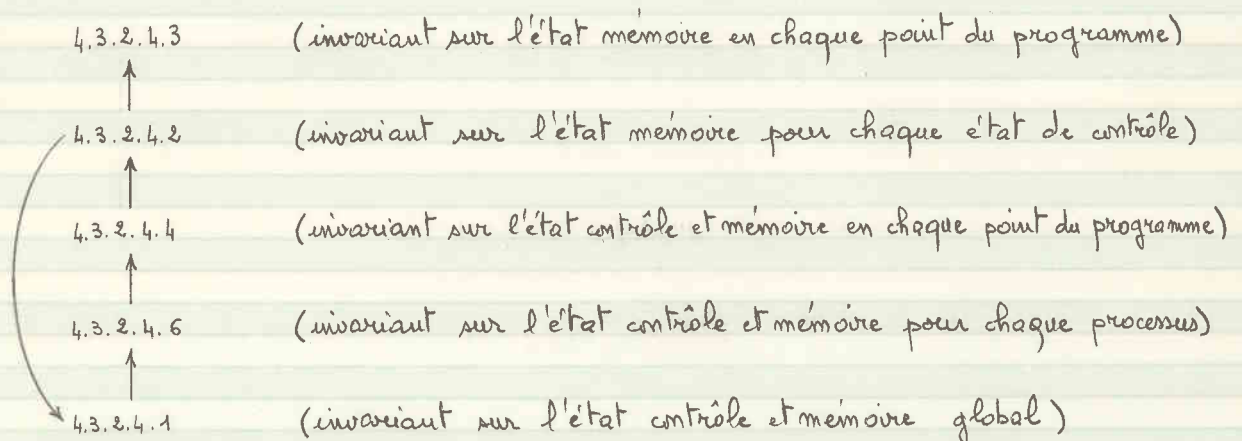 4.3.2.4.3 (invariant sur l'état mémoire en chaque point du programme)
4.3.2.4.2 (invariant sur l'état mémoire pour chaque état de contrôle)
4.3.2.4.4 (invariant sur l'état contrôle et mémoire en chaque point du programme)
4.3.2.4.6 (invariant sur l'état contrôle et mémoire pour chaque processus)
4.3.2.4.1 (invariant sur l'état contrôle et mémoire global)